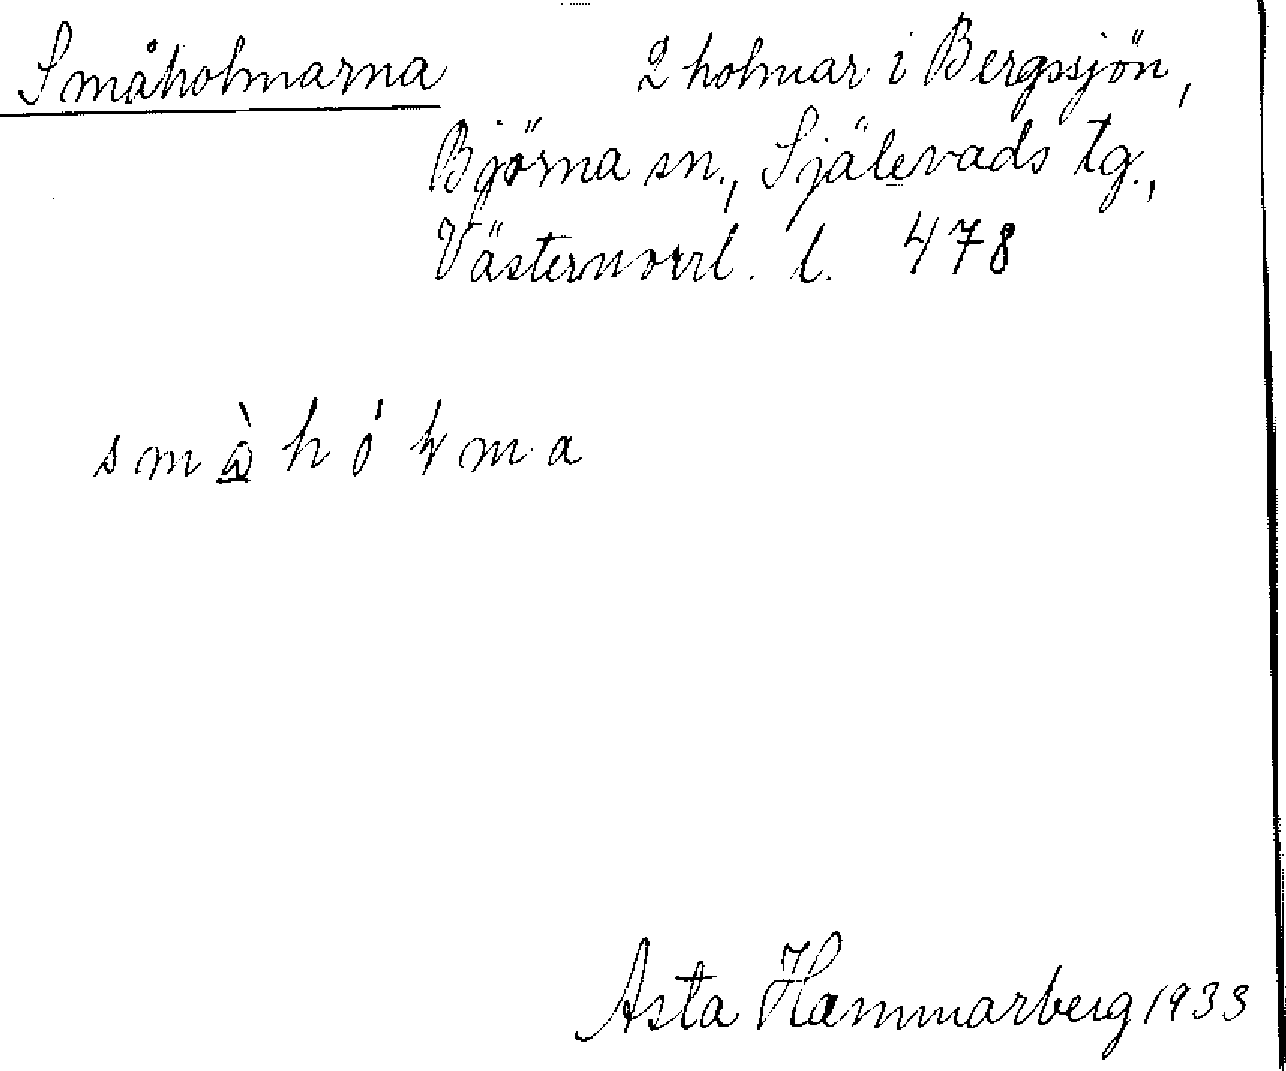 Småholmarna 2 holmar i Bergssjön,
Björna sn., Själevads tg.,
Västernorrl. l. 478
Asta Hammarberg 1933